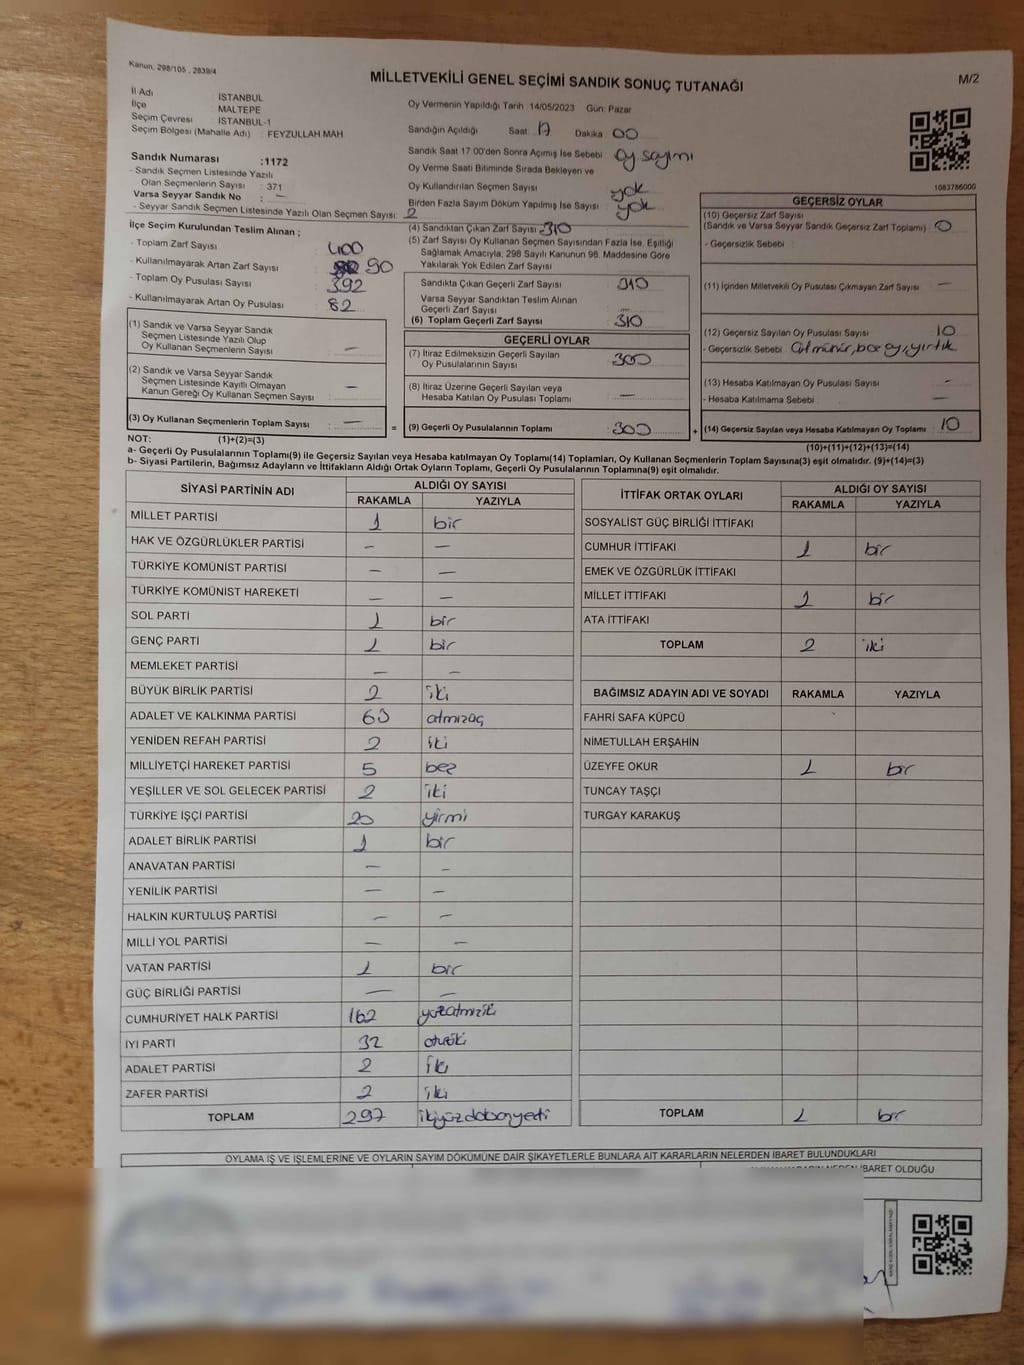 Kanun: 298/105 , 2839/4
MİLLETVEKİLİ GENEL SEÇİMİ SANDIK SONUÇ TUTANAĞI
M/2
İl Adı : İSTANBUL
İlçe : MALTEPE
Seçim Çevresi : İSTANBUL-1
Seçim Bölgesi (Mahalle Adı) : FEYZULLAH MAH
Sandık Numarası :1172
- Sandık Seçmen Listesinde Yazılı
Olan Seçmenlerin Sayısı : 371
Varsa Seyyar Sandık No : —
- Seyyar Sandık Seçmen Listesinde Yazılı Olan Seçmen Sayısı : 2
Oy Vermenin Yapıldığı Tarih 14/05/2023 Gün: Pazar
Sandığın Açıldığı Saat: 17 Dakika 00
Sandık Saat 17:00'den Sonra Açımış İse Sebebi Oy sayımı
Oy Verme Saati Bitiminde Sırada Bekleyen ve
Oy Kullandırılan Seçmen Sayısı yok
Birden Fazla Sayım Döküm Yapılmış İse Sayısı : yok
1083786000
İlçe Seçim Kurulundan Teslim Alınan ;
- Toplam Zarf Sayısı : 400
- Kullanılmayarak Artan Zarf Sayısı : 90
- Toplam Oy Pusulası Sayısı : 392
- Kullanılmayarak Artan Oy Pusulası : 82
(1) Sandık ve Varsa Seyyar Sandık
Seçmen Listesinde Yazılı Olup
Oy Kullanan Seçmenlerin Sayısı : —
(2) Sandık ve Varsa Seyyar Sandık
Seçmen Listesinde Kayıtlı Olmayan
Kanun Gereği Oy Kullanan Seçmen Sayısı : —
(3) Oy Kullanan Seçmenlerin Toplam Sayısı : —
=
(4) Sandıktan Çıkan Zarf Sayısı : 310
(5) Zarf Sayısı Oy Kullanan Seçmen Sayısından Fazla İse, Eşitliği
Sağlamak Amacıyla, 298 Sayılı Kanunun 98. Maddesine Göre
Yakılarak Yok Edilen Zarf Sayısı :
Sandıkta Çıkan Geçerli Zarf Sayısı : 310
Varsa Seyyar Sandıktan Teslim Alınan
Geçerli Zarf Sayısı :
(6) Toplam Geçerli Zarf Sayısı : 310
GEÇERLİ OYLAR
(7) İtiraz Edilmeksizin Geçerli Sayılan
Oy Pusulalarının Sayısı : 300
(8) İtiraz Üzerine Geçerli Sayılan veya
Hesaba Katılan Oy Pusulası Toplamı : —
(9) Geçerli Oy Pusulalarının Toplamı : 300
+
GEÇERSİZ OYLAR
(10) Geçersiz Zarf Sayısı
(Sandık ve Varsa Seyyar Sandık Geçersiz Zarf Toplamı) : 0
- Geçersizlik Sebebi :
(11) İçinden Milletvekili Oy Pusulası Çıkmayan Zarf Sayısı : —
(12) Geçersiz Sayılan Oy Pusulası Sayısı : 10
- Geçersizlik Sebebi : yırtık
(13) Hesaba Katılmayan Oy Pusulası Sayısı : -
- Hesaba Katılmama Sebebi : —
(14) Geçersiz Sayılan veya Hesaba Katılmayan Oy Toplamı : 10
NOT: (1)+(2)=(3)
(10)+(11)+(12)+(13)=(14)
a- Geçerli Oy Pusulalarının Toplamı(9) ile Geçersiz Sayılan veya Hesaba katılmayan Oy Toplamı(14) Toplamları, Oy Kullanan Seçmenlerin Toplam Sayısına(3) eşit olmalıdır. (9)+(14)=(3)
b- Siyasi Partilerin, Bağımsız Adayların ve İttifakların Aldığı Ortak Oyların Toplamı, Geçerli Oy Pusulalarının Toplamına(9) eşit olmalıdır.
SİYASİ PARTİNİN ADI ALDIĞI OY SAYISI
RAKAMLA YAZIYLA
MİLLET PARTİSİ 1 bir
HAK VE ÖZGÜRLÜKLER PARTİSİ — —
TÜRKİYE KOMÜNİST PARTİSİ — —
TÜRKİYE KOMÜNİST HAREKETİ — —
SOL PARTİ 1 bir
GENÇ PARTİ 1 bir
MEMLEKET PARTİSİ — —
BÜYÜK BİRLİK PARTİSİ 2 iki
ADALET VE KALKINMA PARTİSİ 63 atmızüç
YENİDEN REFAH PARTİSİ 2 iki
MİLLİYETÇİ HAREKET PARTİSİ 5 beş
YEŞİLLER VE SOL GELECEK PARTİSİ 2 iki
TÜRKİYE İŞÇİ PARTİSİ 20 yirmi
ADALET BİRLİK PARTİSİ 1 bir
ANAVATAN PARTİSİ — —
YENİLİK PARTİSİ — —
HALKIN KURTULUŞ PARTİSİ — —
MİLLİ YOL PARTİSİ — —
VATAN PARTİSİ 1 bir
GÜÇ BİRLİĞİ PARTİSİ — —
CUMHURİYET HALK PARTİSİ 162 yüzatmıziki
İYİ PARTİ 32 otuziki
ADALET PARTİSİ 2 iki
ZAFER PARTİSİ 2 iki
TOPLAM 297 ikiyüzdoksanyedi
İTTİFAK ORTAK OYLARI ALDIĞI OY SAYISI
RAKAMLA YAZIYLA
SOSYALİST GÜÇ BİRLİĞİ İTTİFAKI
CUMHUR İTTİFAKI 1 bir
EMEK VE ÖZGÜRLÜK İTTİFAKI
MİLLET İTTİFAKI 1 bir
ATA İTTİFAKI
TOPLAM 2 iki
BAĞIMSIZ ADAYIN ADI VE SOYADI RAKAMLA YAZIYLA
FAHRİ SAFA KÜPCÜ
NİMETULLAH ERŞAHİN
ÜZEYFE OKUR 1 bir
TUNCAY TAŞÇI
TURGAY KARAKUŞ
TOPLAM 1 bir
OYLAMA İŞ VE İŞLEMLERİNE VE OYLARIN SAYIM DÖKÜMÜNE DAİR ŞİKAYETLERLE BUNLARA AİT KARARLARIN NELERDEN İBARET BULUNDUKLARI
İBARET OLDUĞU